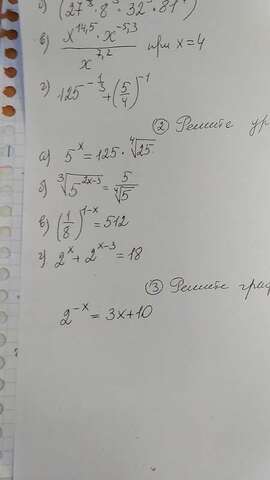 б) (27³ · 8 · 32³ · 81
в) x^{14,5} · x^{-5,3} / x^{7,2} при x = 4
г) 125^{-1/3} + (5/4)^{-1}
② Решите ур
а) 5^x = 125 · ∜25
б) ∛(5^{2x-3}) = 5/∜5
в) (1/8)^{1-x} = 512
г) 2^x + 2^{x-3} = 18
③ Решите граф
2^{-x} = 3x+10